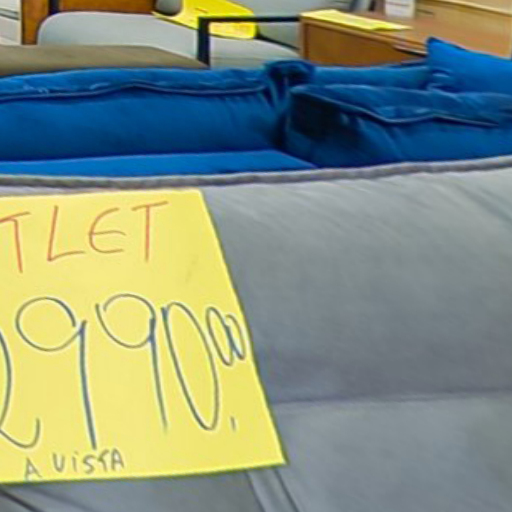 TLET
2990,00
A VISTA